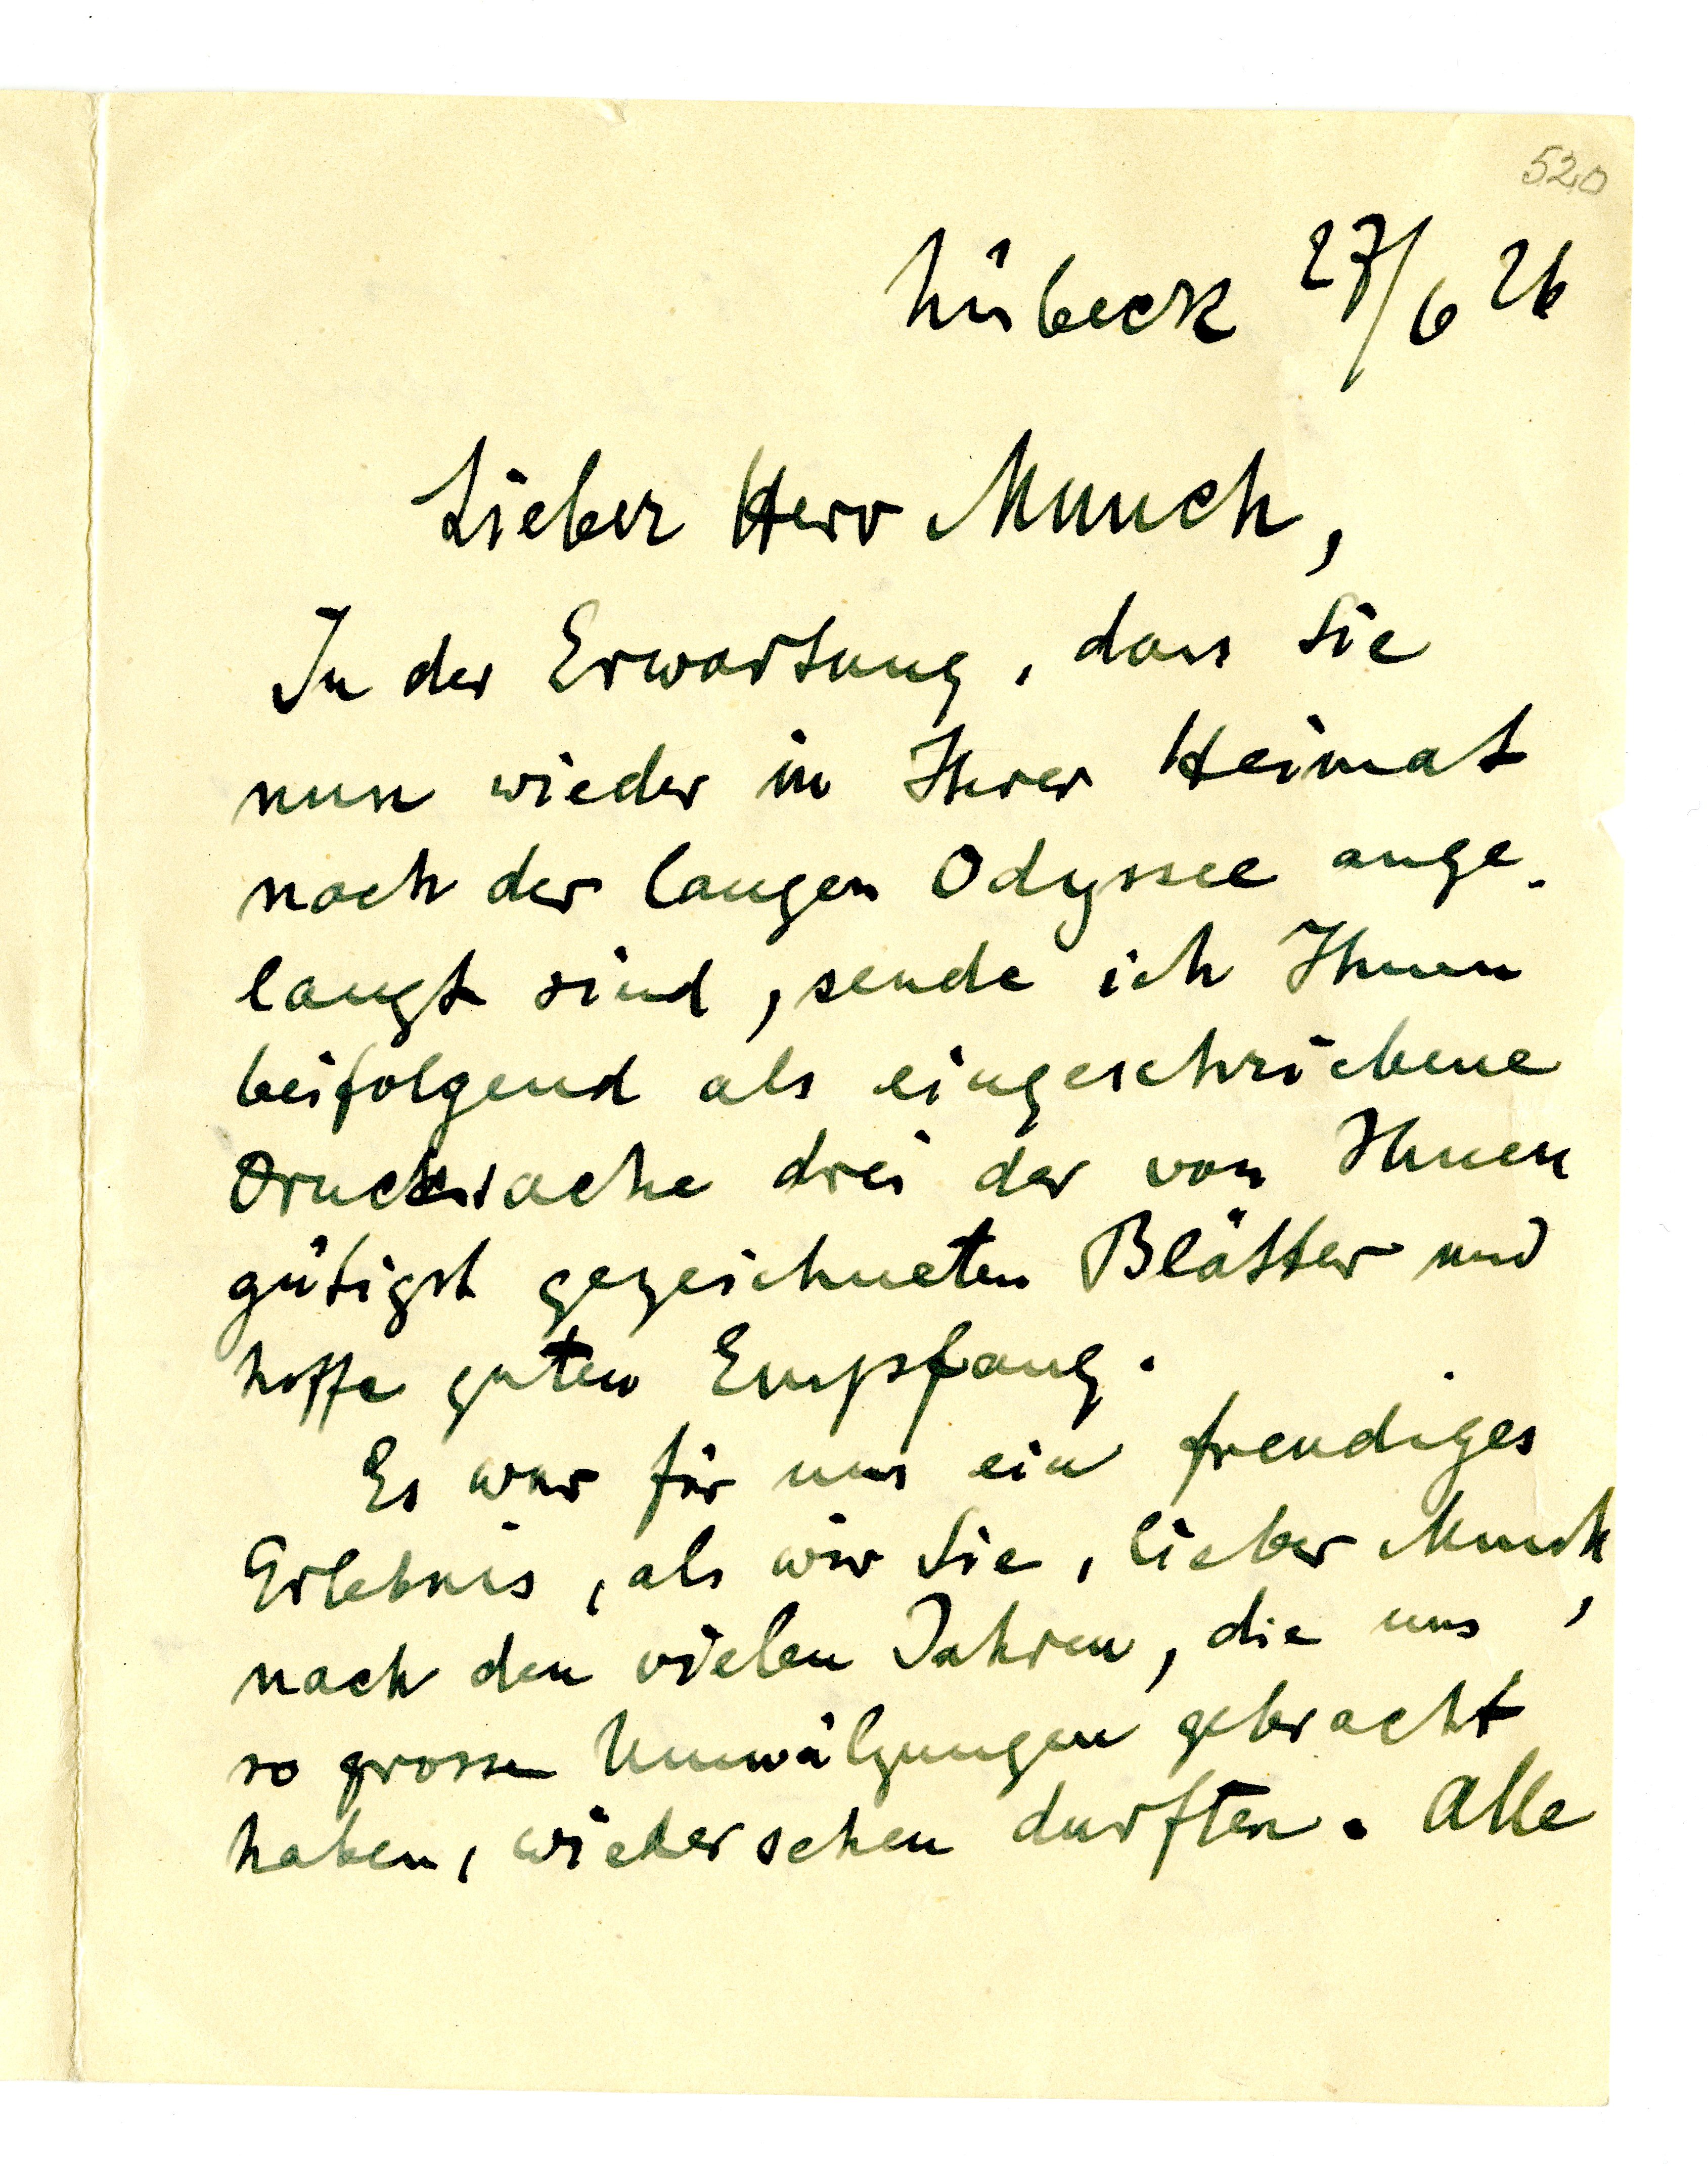 520
Lübeck 27/6 26
Lieber Herr Munch,
In der Erwartung, dass Sie
nun wieder in Ihrer Heimat
nach der langen Odyssee ange-
langt sind, sende ich Ihnen
beifolgend als eingeschriebene
Drucksache drei der von Ihnen
gütigst gezeichneten Blätter und
hoffe guten Empfang.
Es war für uns ein freudiges
Erlebnis, als wir Sie, lieber Munch,
nach den vielen Jahren, die uns
so grosse Umwälzungen gebracht
haben, wiedersehen durften. Alle